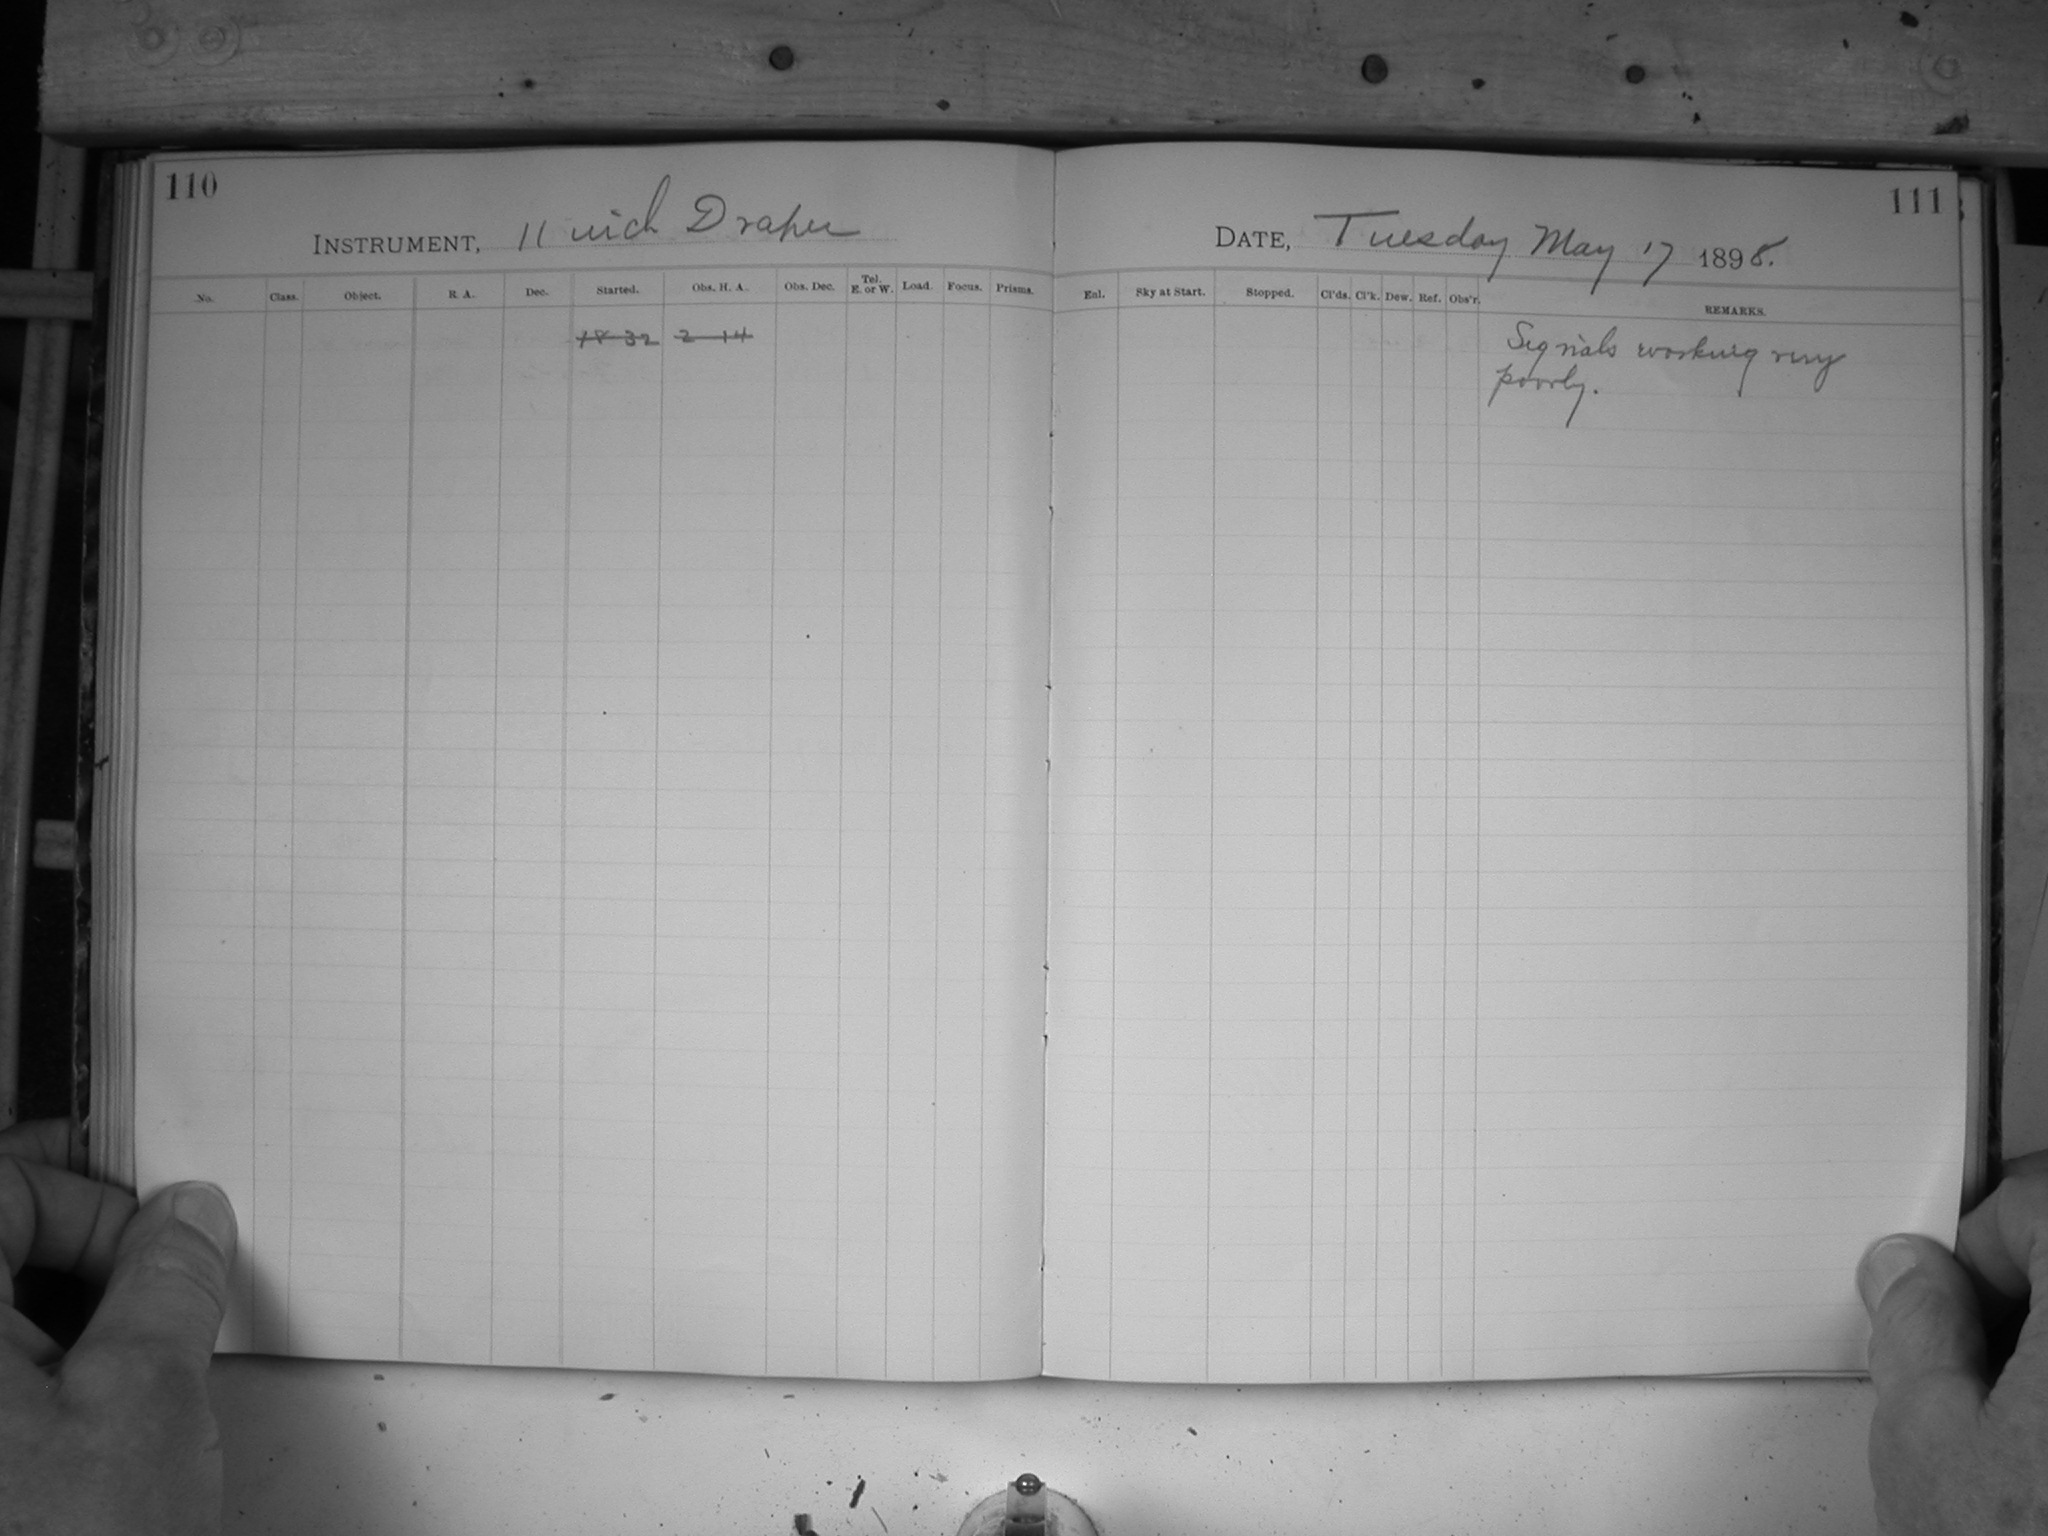 110
INSTRUMENT, 11 inch Draper
No. Class. Object. R. A. Dec. Started. Obs. H. A. Obs. Dec. Tel. E. or W. Load. Focus. Prisms.
18 32 2 14
111
DATE, Tuesday May 17 1898.
Enl. Sky at Start. Stopped. Cl'ds. Cl'k. Dew. Ref. Obs'r. REMARKS.
Signals working very
poorly.